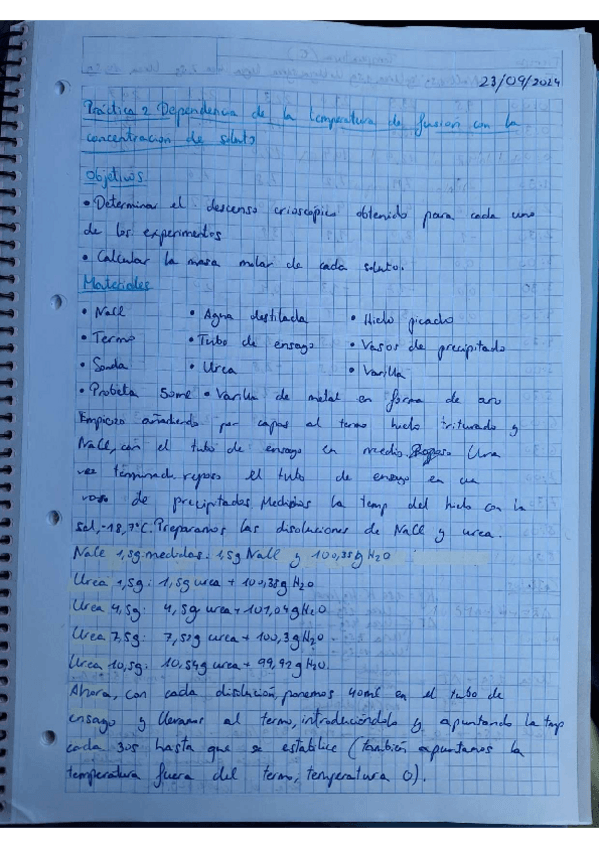 23/09/2024
Práctica 2 Dependencia de la temperatura de fusión con la
concentracion de soluto
Objetivos
• Determinar el descenso crioscópico obtenido para cada uno
de los experimentos
• Calcular la masa molar de cada soluto.
Materiales
• NaCl • Agua destilada • Hielo picado
• Termo • Tubo de ensayo • Vasos de precipitado
• Sonda • Urea • Varilla
• Probeta 50ml • Varilla de metal en forma de aro
Empiezo añadiendo por capas al termo hielo triturado y
NaCl, con el tubo de ensayo en medio. Una
vez terminado, reposo el tubo de ensayo en un
vaso de precipitados. Medimos la temp del hielo con la
sal, -18,7°C. Preparamos las disoluciones de NaCl y urea.
NaCl 1,5g medidas: 1,5g NaCl y 100,35g H2O
Urea 1,5g: 1,5g urea + 100,38g H2O
Urea 4,5g: 4,5g urea + 101,04g H2O
Urea 7,5g: 7,51g urea + 100,3g H2O
Urea 10,5g: 10,54g urea + 99,92g H2O.
Ahora, con cada disolución, ponemos 40ml en el tubo de
ensayo y llevamos al termo, introduciéndolo y apuntando la tmp
cada 30s hasta que se estabilice (también apuntamos la
temperatura fuera del termo, temperatura 0).